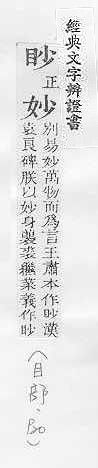 經典文字辨證書
眇正
妙別易妙萬物而爲言王肅本作眇漢
袁良碑朕以妙身襲裘繼業義作眇
(目部、